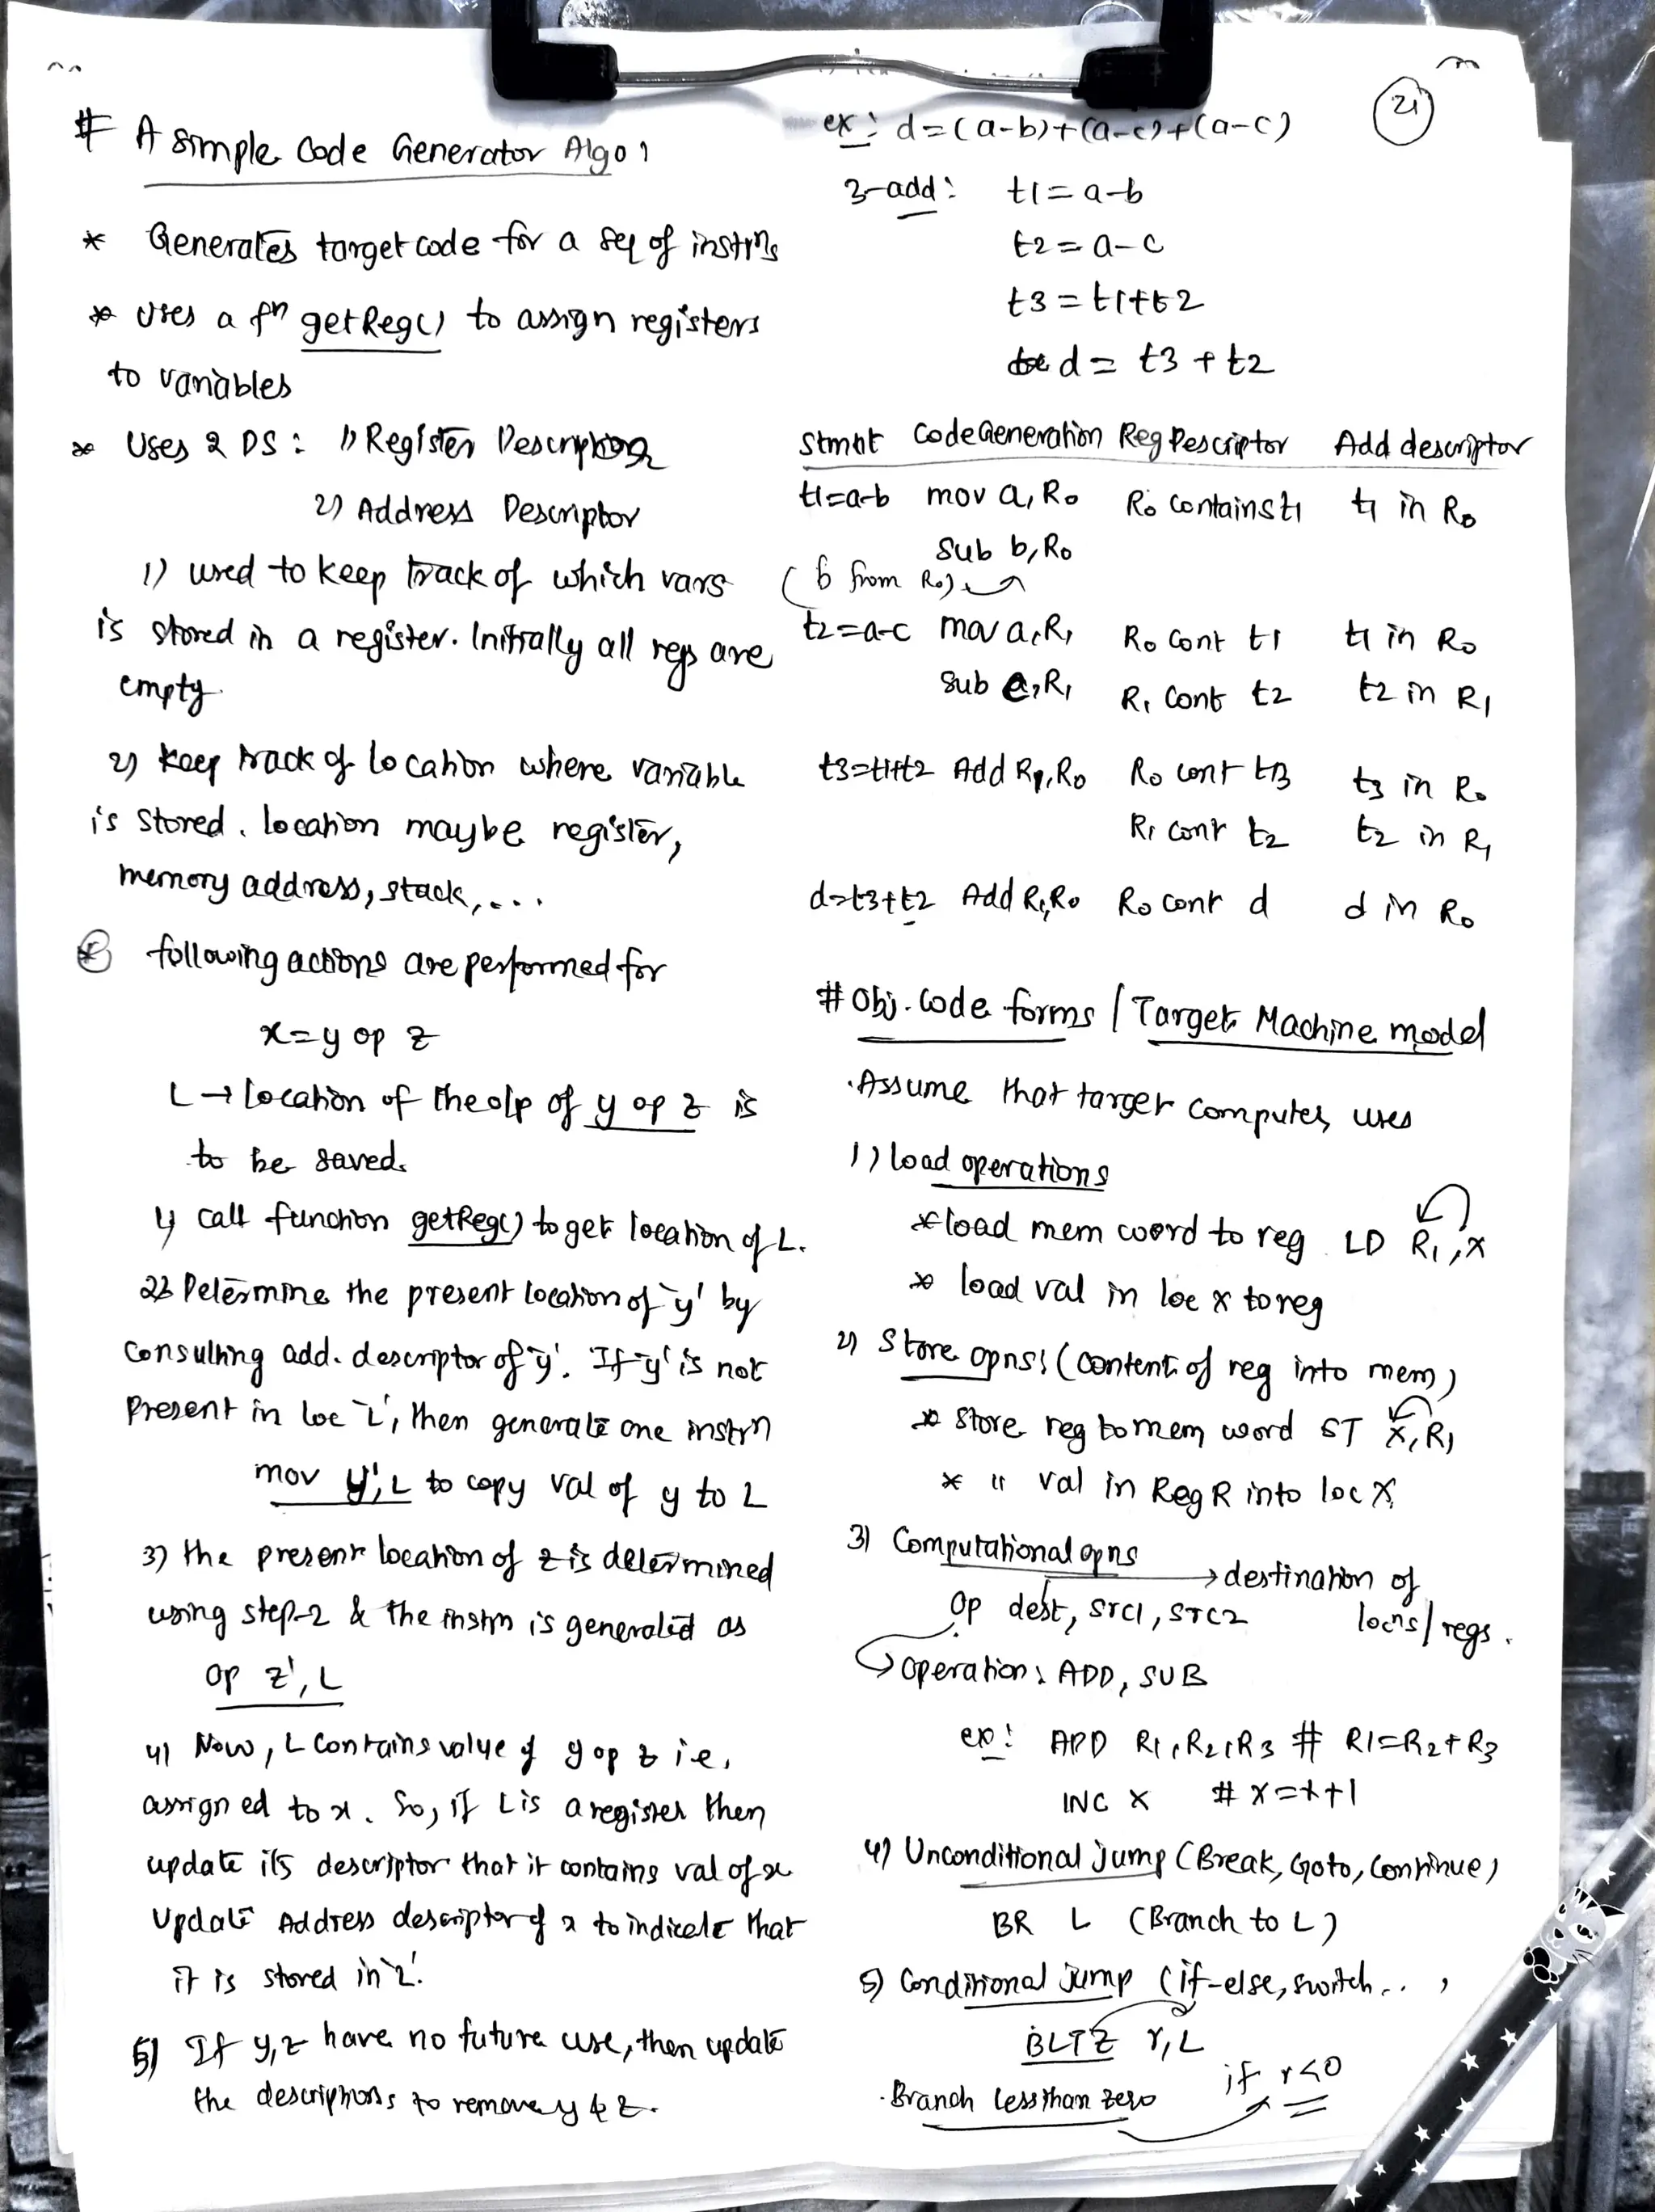 # A simple Code Generator Algo
* Generates target code for a seq of instrns
* Uses a fn getReg() to assign registers
to variables
* Uses 2 DS: 1) Register Description
2) Address Descriptor
1) used to keep track of which vars
is stored in a register. Initially all regs are
empty.
2) Keep track of location where variable
is stored. location maybe register,
memory address, stack, ...
* following actions are performed for
x = y op z
L → location of the o/p of y op z is
to be saved.
1) call function getReg() to get location of L.
2) Determine the present location of 'y' by
consulting add. descriptor of 'y'. If 'y' is not
present in loc 'L', then generate one instrn
mov y', L to copy val of y to L
3) the present location of z is determined
using step-2 & the instrn is generated as
op z', L
4) Now, L contains value of y op z i.e,
assigned to x. So, if L is a register then
update its descriptor that it contains val of x
Update Address descriptor of x to indicate that
it is stored in 'L'.
5) If y,z have no future use, then update
the descriptions to remove y & z.
21
ex: d=(a-b)+(a-c)+(a-c)
3-add: t1 = a-b
t2 = a-c
t3 = t1+t2
d = t3 + t2
Stmnt Code Generation Reg Descriptor Add descriptor
t1=a-b mov a, R0 R0 contains t1 t1 in R0
Sub b, R0
(b from R0)
t2=a-c mov a, R1 R0 cont t1 t1 in R0
Sub c, R1 R1 Cont t2 t2 in R1
t3=t1+t2 Add R1, R0 R0 cont t3 t3 in R0
R1 cont t2 t2 in R1
d=t3+t2 Add R1, R0 R0 cont d d in R0
# Obj. code forms / Target Machine model
· Assume that target computer uses
1) load operations
* load mem word to reg LD R1, x
* load val in loc x to reg
2) Store opns: (content of reg into mem)
* Store reg to mem word ST x, R1
* " val in Reg R into loc x
3) Computational opns
→ destination of
locns/regs.
Op dest, src1, src2
Operation: ADD, SUB
ex: ADD R1, R2, R3 # R1=R2+R3
INC X # X=X+1
4) Unconditional jump (Break, Goto, Continue)
BR L (Branch to L)
5) Conditional Jump (if-else, switch..,
BLTZ r, L
· Branch less than zero if r<0